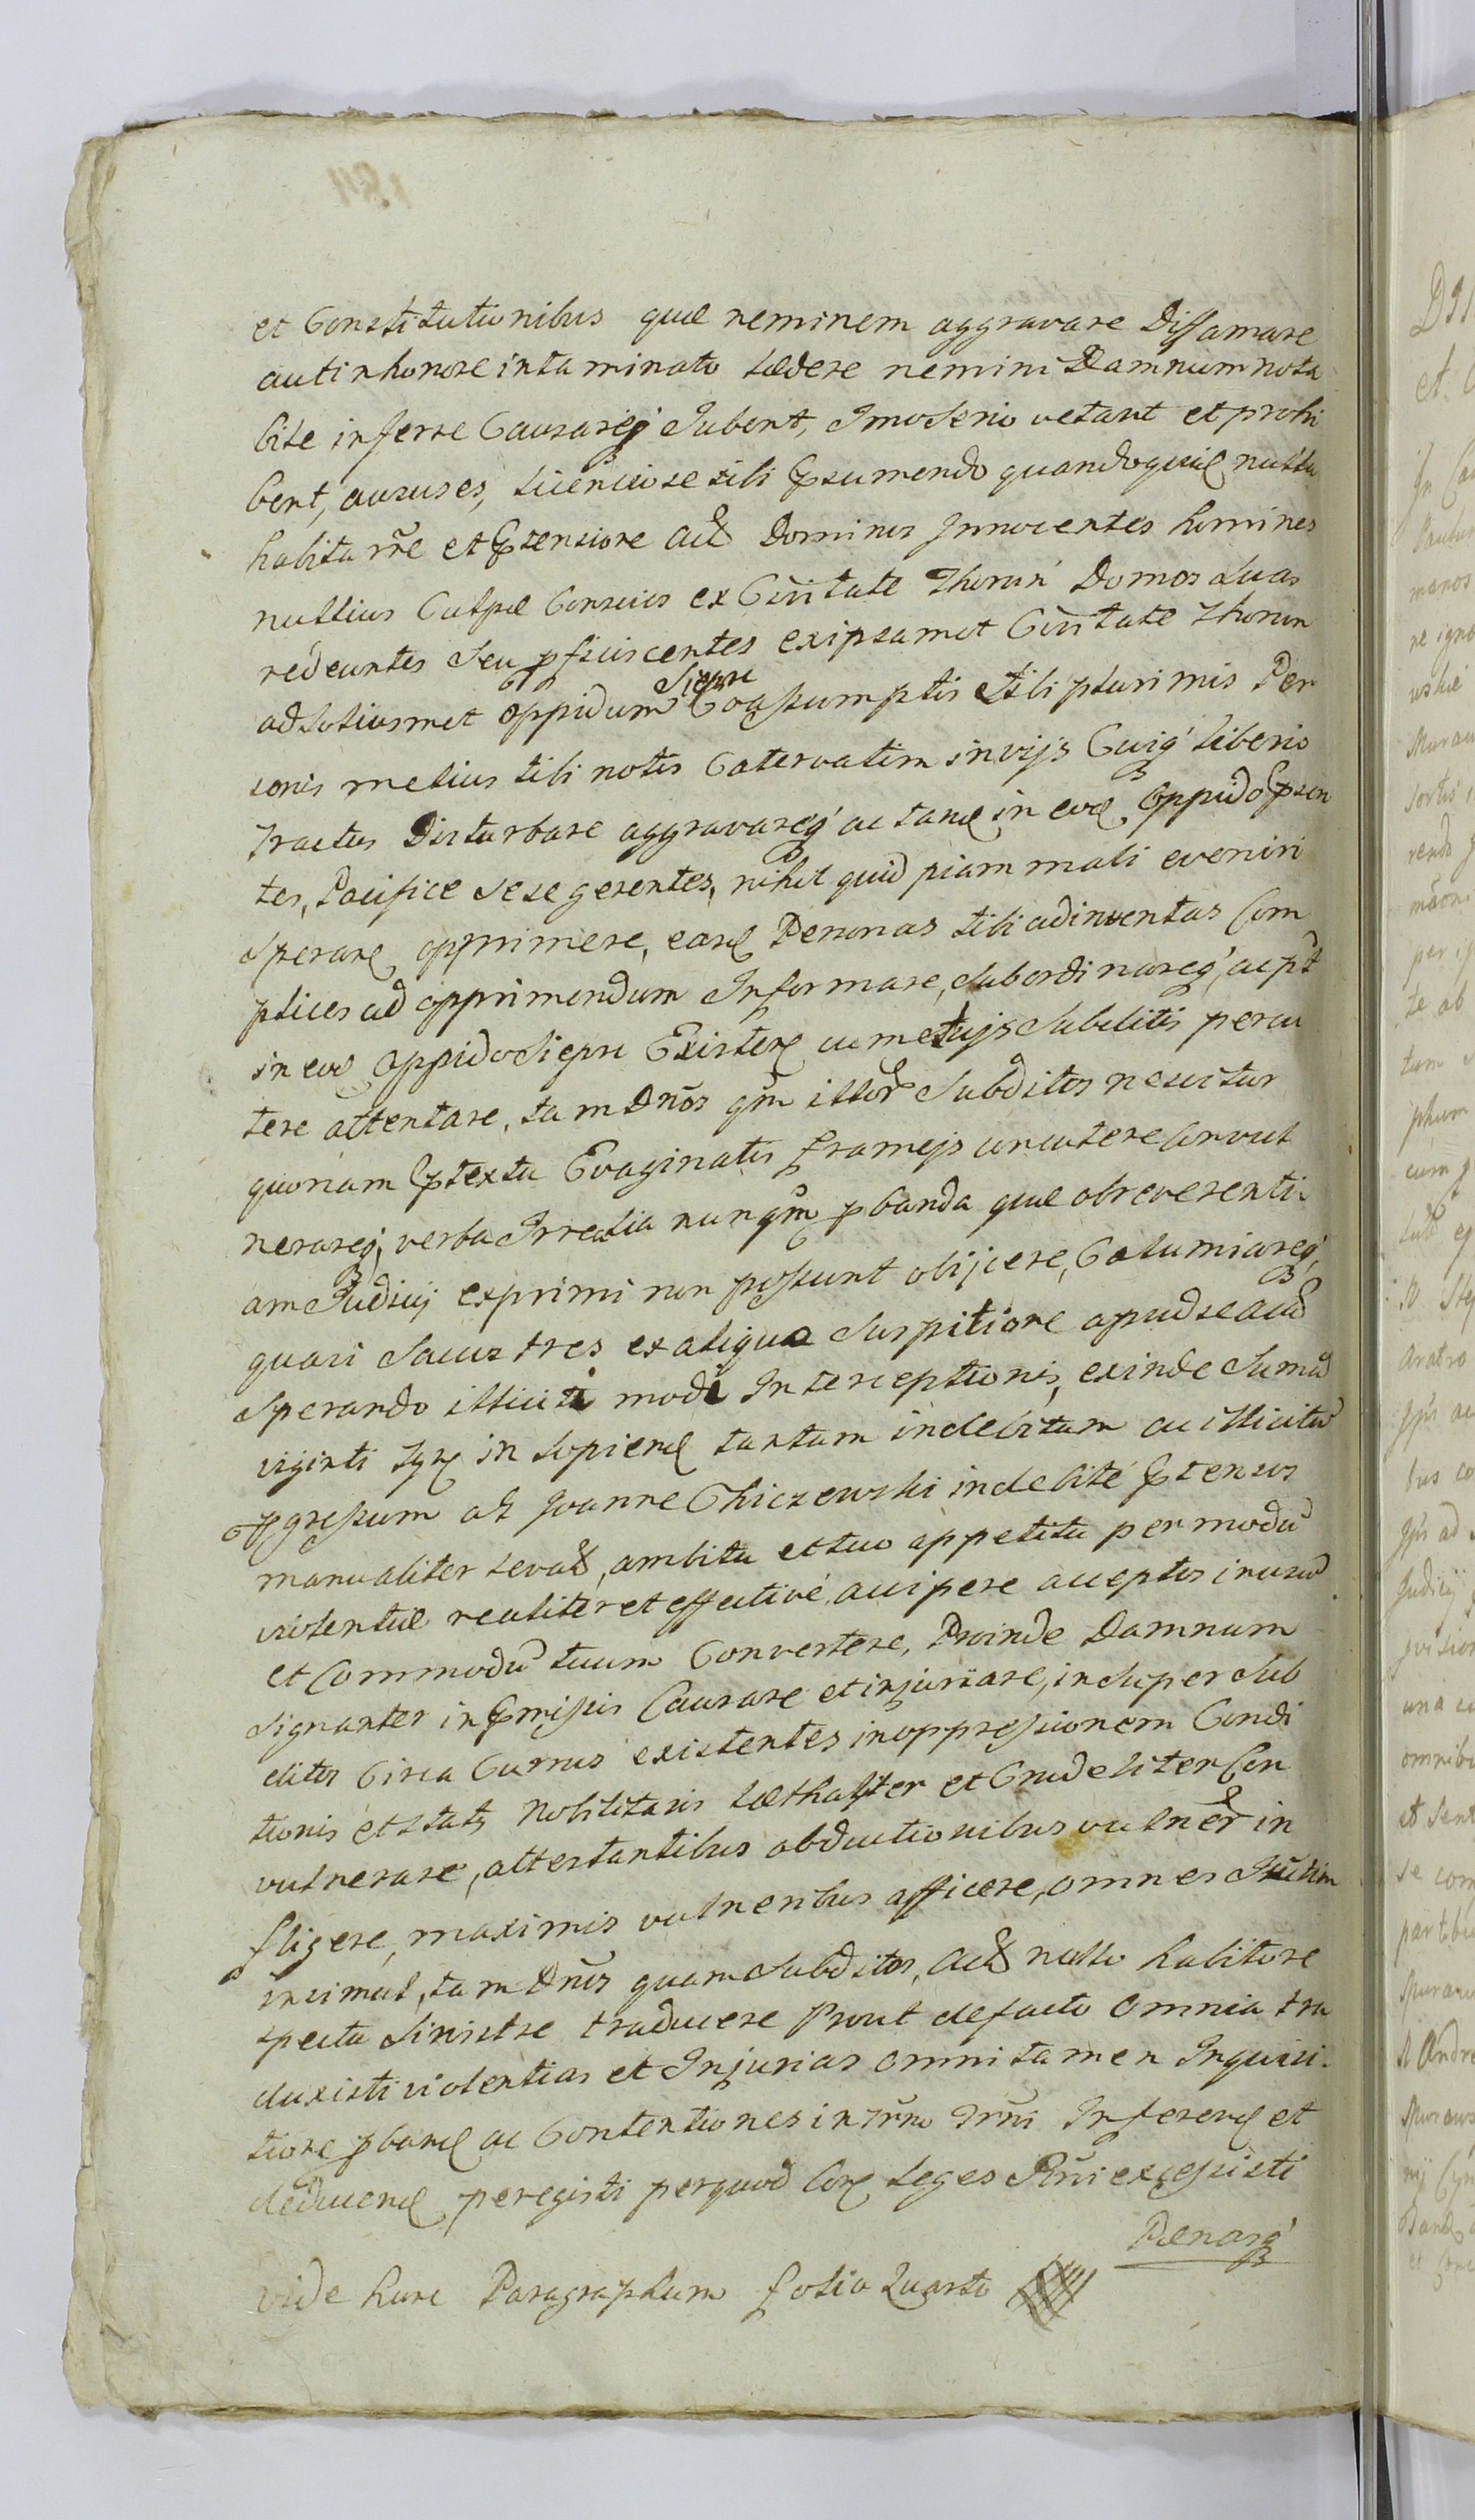 et Constitutionibus quæ neminem aggravare Diffamare
aut in honore intaminato lædere nemini Damnum nota
bile inferre Causareq̨ Jubent, Imo Serio vetant et prohi
bent, ausus es, licenciose sibi præsumendo quandoquidē nulla
habita rñe et Prætensione Actor̃ Dominos Innocentes homines
nullius Culpæ Conscios ex Civitate Thorun Domos Suas
redeuntes Seu pficiscentes ex ipsamet Civitate Thorun
ad Solius met oppidum Siepre Coassumptis Tibi plurimis Per
sonis melius tibi notis Catervatim in vijs Cuiq̨ liberis
Tractus Disturbare aggravareq̨ ac tandē in eodē Oppido præsen
tes, Pacifice Sese gerentes, nihil quid piam mali eveniri
Sperare opprimere, easdē Personas tibi adinventas Com
plices ad opprimendum Informare, Subordinareq̨, ac pt
in eodē oppido Siepre Existere cum et ijs Subditis percu
tere attentare, tam Dños qm̃ illor̃ Subditos nescitur
quonam prætextu Evaginatis frameijs concutere Convul
nerareq̨, verba Irrealia nunqm̃ pbanda quæ ob reverenti
am Judicij exprimi non possunt obijcere, Calumiareq̨,
quasi Sacus tres ex aliqua Suspitione apud se
Sperando illiciti modi Interceptionis, exinde Sumā
viginti in Sopiendē tantum indebitam ac illicitū
prægressum ab Joanne Chiczewski indebité prætensos
manualiter levat, ambitu et tuo appetitu per modū
violentiæ realiter et effectivé accipere acceptos in usū
et Commodū tuum Convertere, Proinde Damnum
Signanter in præmissis Causare et injuriare, in Super Sub
ditos Circa Currus existentes in oppressionem Condi
tionis et Stats Nobilitaris Læthaliter et Crudeliter Con
vulnerare, attestantibus obductionibus vulner̃ in
fligere, maximis vulneribus afficere, omnes
insimul, tam Dños quam Subditos, nullo habito re
spectu Sinistre traducere Prout de facto Omnia tra
duxisti violentias et Injurias omni tamen Inquisi
tione pbandē ac Contentiones in Trm̃o Trm̃i Inferendē et
deducendē peregisti perquod Coñes leges Rñi excessisti
Pænasq̨
vide hunc Paragraphum folio Quarto